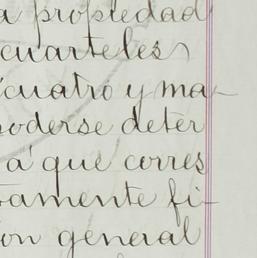 a propiedad
cuarteles
cuatro y ma-
poderse deter
a' que corres
amente fi
on general